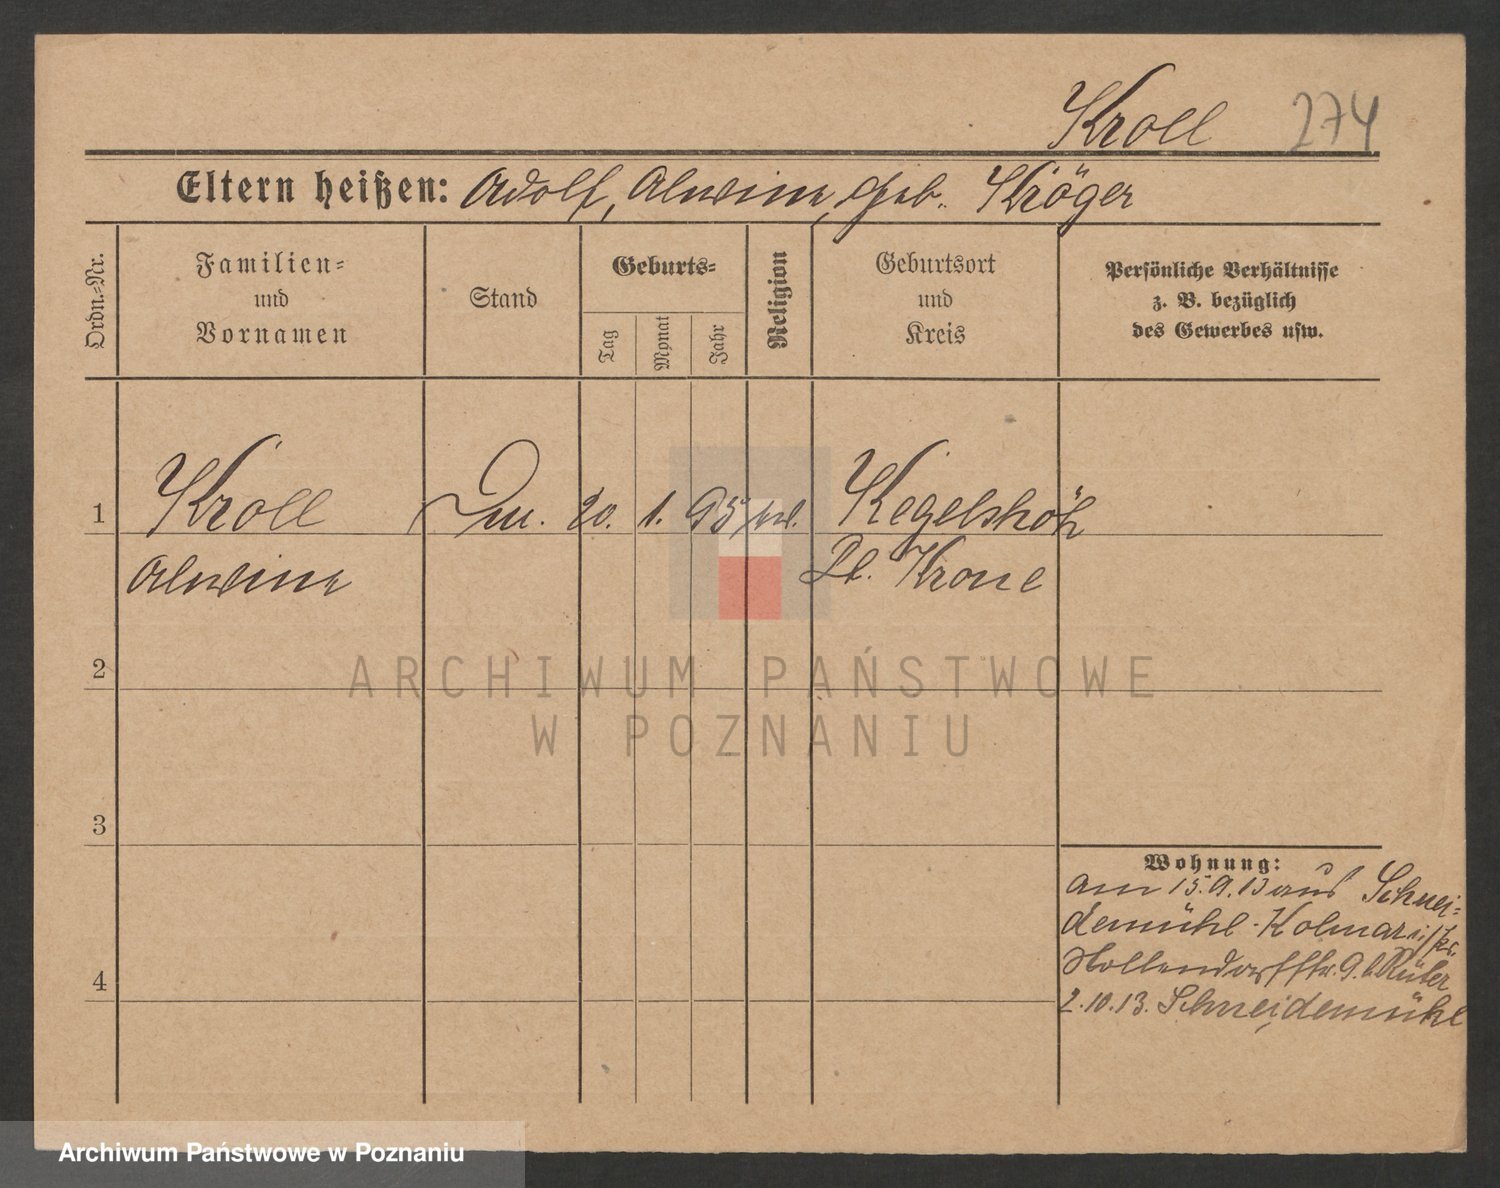 Kroll 274
Eltern heißen: Adolf, Alwine, geb. Kröger
Ordn.-Nr.
Familien-
und
Vornamen
Stand
Geburts-
Tag
Monat
Jahr
Religion
Geburtsort
und
Kreis
Persönliche Verhältnisse
z. B. bezüglich
des Gewerbes usw.
1 Kroll 20. 1. 95 Kegelshöh
Alwine Dt. Krone
2
3
4
Wohnung:
am 15.9.13 aus Schnei-
demühl-Kolmar
9.
2.10.13. Schneidemühl
ARCHIWUM PAŃSTWOWE
W POZNANIU
Archiwum Państwowe w Poznaniu